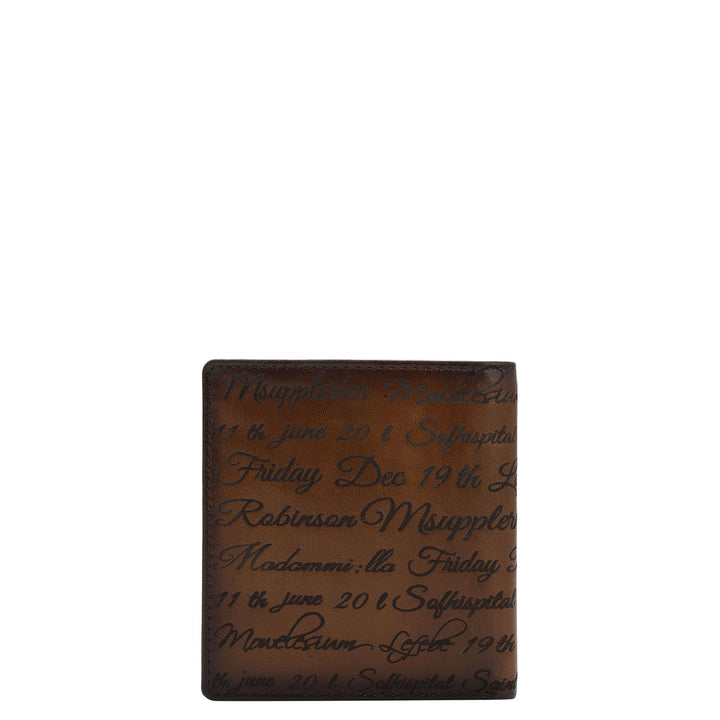 Msupplerher Mouelesium
11 th june 20 l Safhispital
Friday Dec 19 th
Robinson Msuppler
Madammi;lla Friday
11 th june 20 l Safhispital
Mouelesium Lefebe 19 th
th june 20 l Safhispital Sain